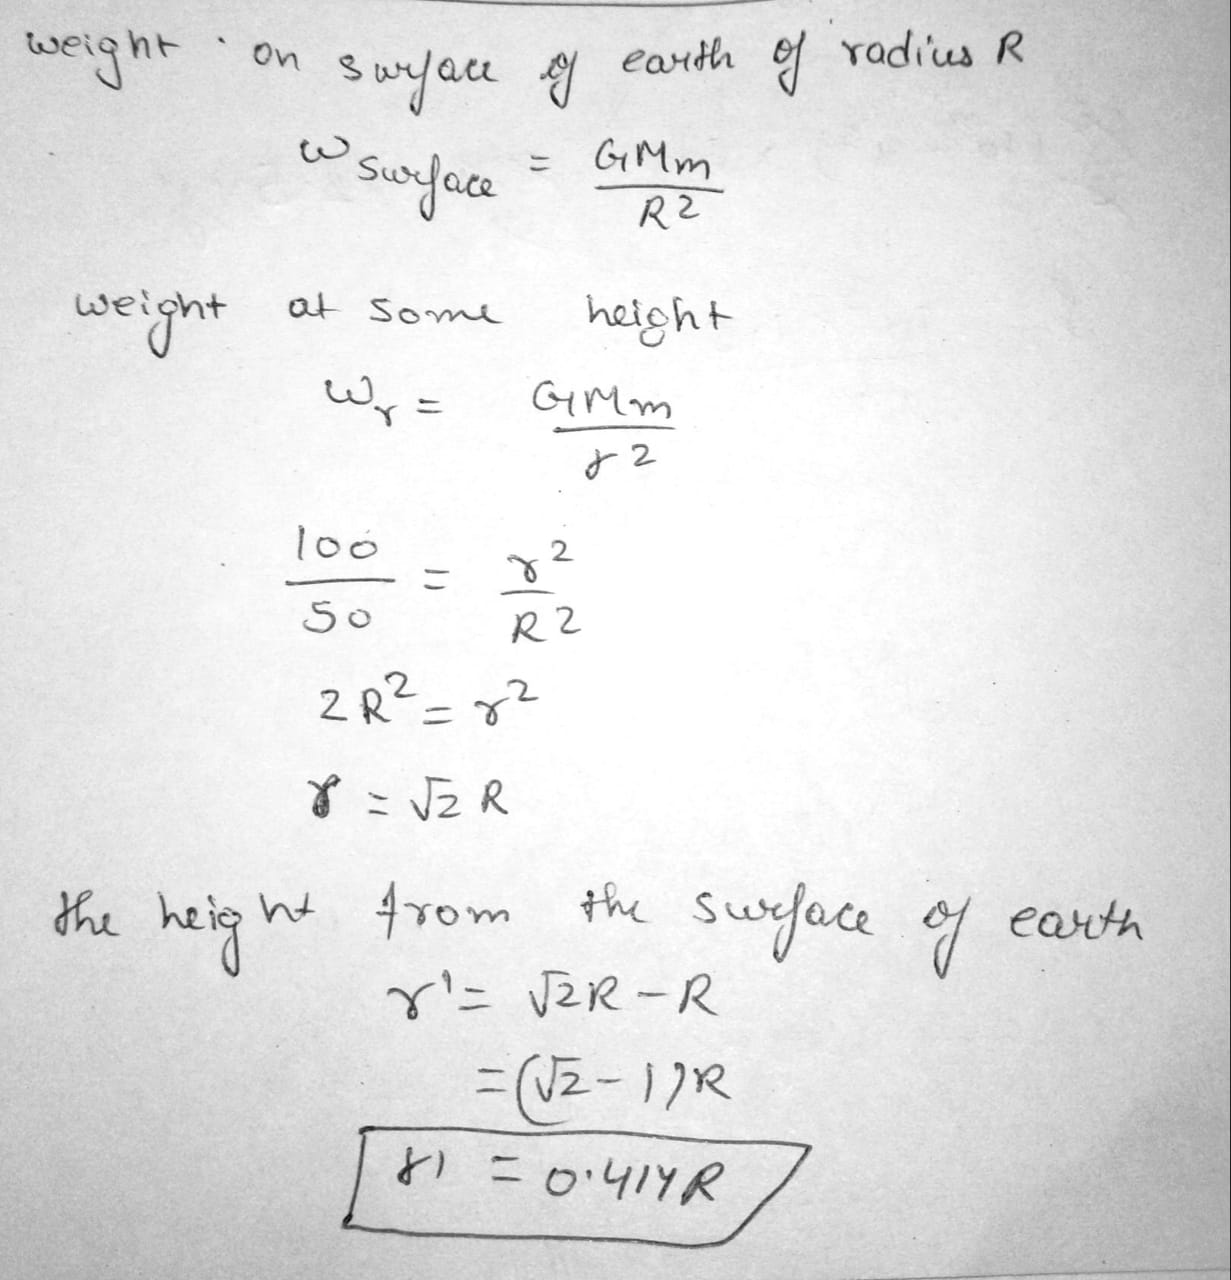 weight on surface of earth of radius R
W surface = GMm / R²
weight at some height
Wr = GMm / r²
100 / 50 = r² / R²
2R² = r²
r = √2 R
the height from the surface of earth
r' = √2R - R
= (√2 - 1)R
r' = 0.414R